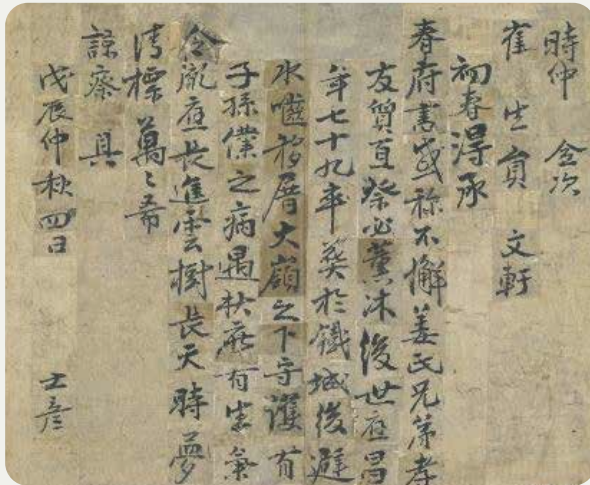 時仲 全次
崔生員 文軒
初春得承
春府書盛称不懈姜氏兄弟孝
友質直祭必薰沐後世應昌
年七十九卒葬於鐵城後避
水嚙移厝大嶺之下守護有
子孫僕之病遇秋府有紫氣
令胤應長進雲樹長天時夢
清標萬〻希
諒察 具
戊辰仲秋四日 士彦